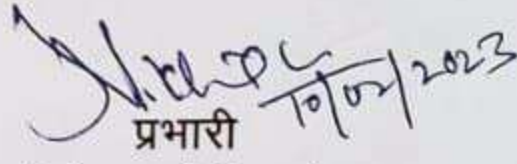 10/02/2023
प्रभारी